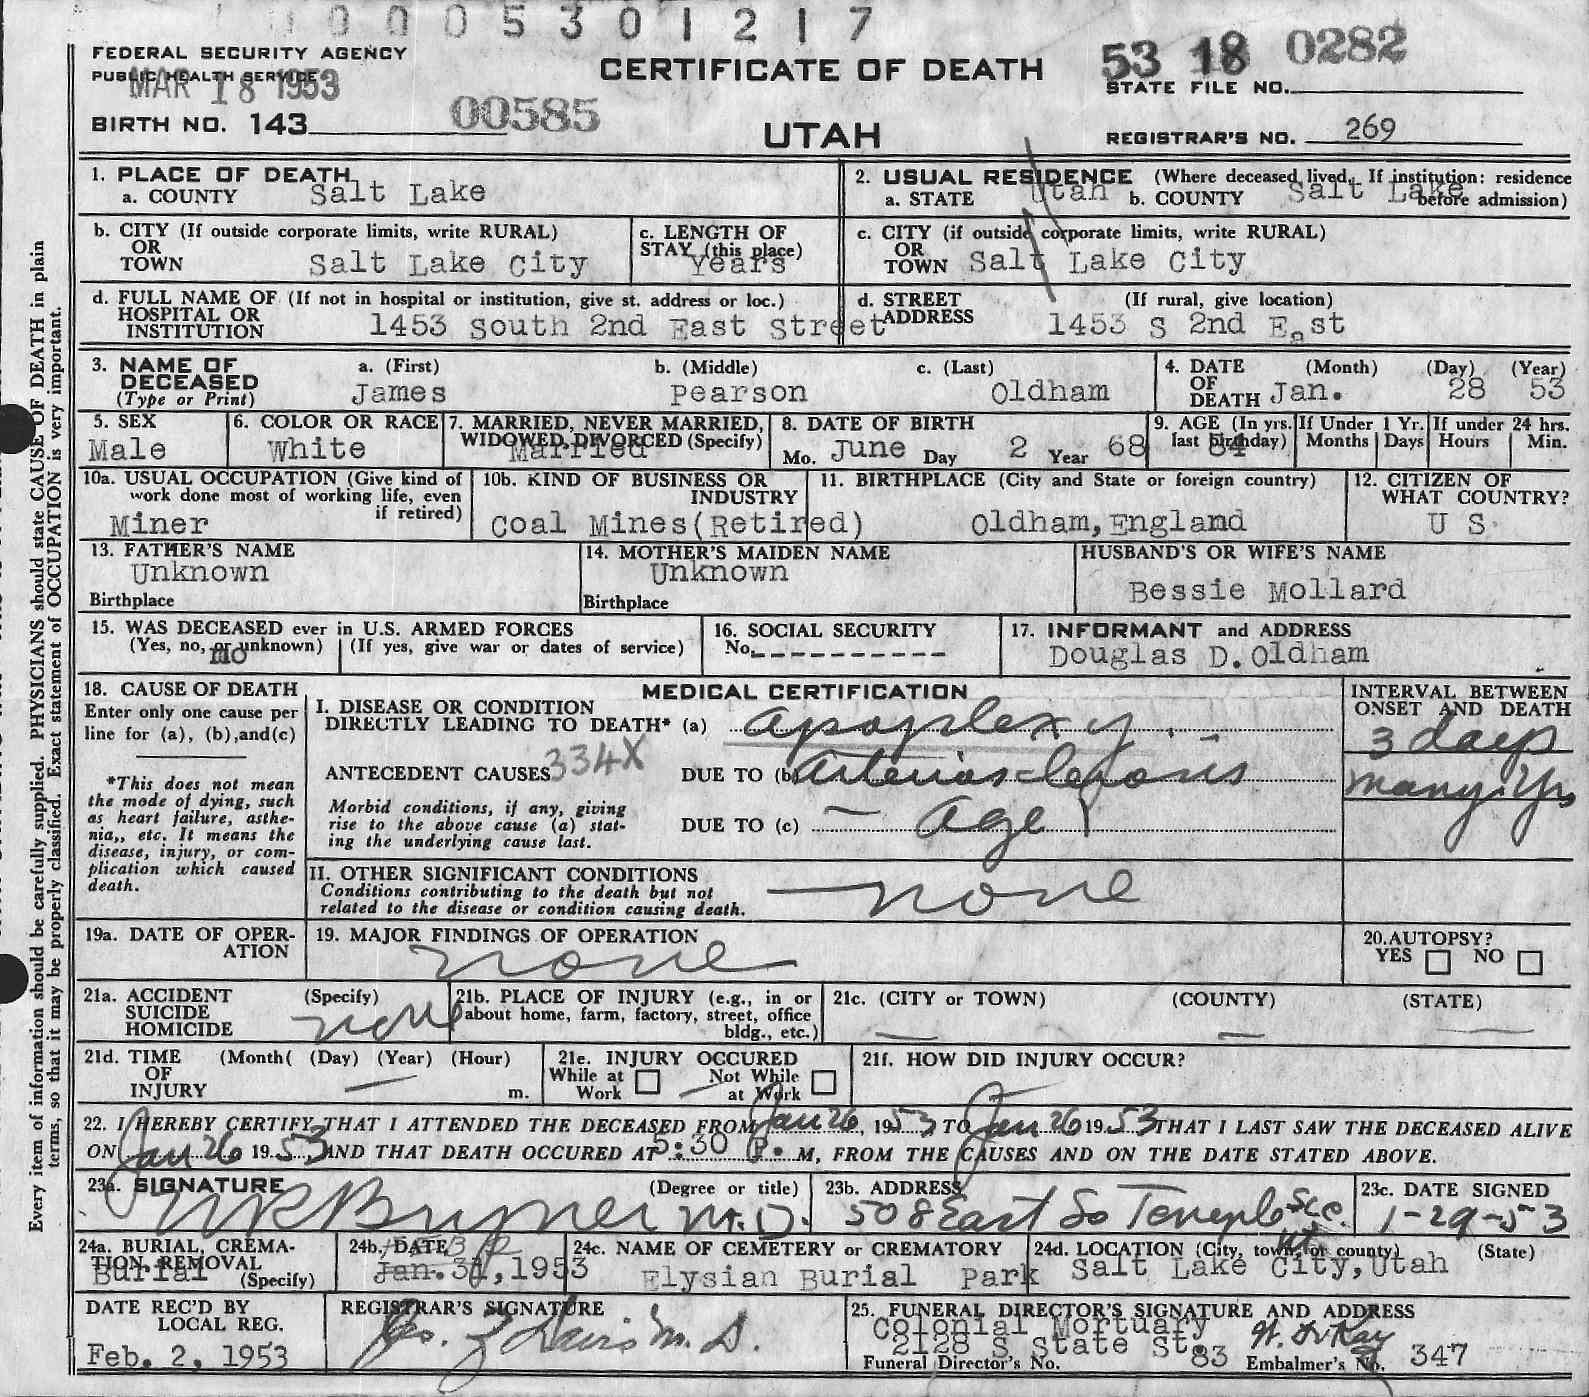 0 0 0 5 3 0 1 2 1 7
FEDERAL SECURITY AGENCY
PUBLIC HEALTH SERVICE
MAR 18 1953
CERTIFICATE OF DEATH
53 18 0282
STATE FILE NO.
BIRTH NO. 143 00585
UTAH
REGISTRAR'S NO. 269
1. PLACE OF DEATH
a. COUNTY Salt Lake
2. USUAL RESIDENCE (Where deceased lived. If institution: residence before admission)
a. STATE Utah b. COUNTY Salt Lake
b. CITY (If outside corporate limits, write RURAL)
OR
TOWN Salt Lake City
c. LENGTH OF
STAY (this place)
Years
c. CITY (if outside corporate limits, write RURAL)
OR
TOWN Salt Lake City
d. FULL NAME OF (If not in hospital or institution, give st. address or loc.)
HOSPITAL OR
INSTITUTION 1453 South 2nd East Street
d. STREET (If rural, give location)
ADDRESS 1453 S 2nd East
3. NAME OF
DECEASED
(Type or Print)
a. (First) b. (Middle) c. (Last)
James Pearson Oldham
4. DATE (Month) (Day) (Year)
OF
DEATH Jan. 28 53
5. SEX
Male
6. COLOR OR RACE
White
7. MARRIED, NEVER MARRIED,
WIDOWED, DIVORCED (Specify)
Married
8. DATE OF BIRTH
Mo. June Day 2 Year 68
9. AGE (In yrs. last birthday)
84
If Under 1 Yr.
Months Days
If under 24 hrs.
Hours Min.
10a. USUAL OCCUPATION (Give kind of
work done most of working life, even
if retired)
Miner
10b. KIND OF BUSINESS OR
INDUSTRY
Coal Mines(Retired)
11. BIRTHPLACE (City and State or foreign country)
Oldham,England
12. CITIZEN OF
WHAT COUNTRY?
U S
13. FATHER'S NAME
Unknown
Birthplace
14. MOTHER'S MAIDEN NAME
Unknown
Birthplace
HUSBAND'S OR WIFE'S NAME
Bessie Mollard
15. WAS DECEASED ever in U.S. ARMED FORCES
(Yes, no, or unknown) (If yes, give war or dates of service)
no
16. SOCIAL SECURITY
No.
17. INFORMANT and ADDRESS
Douglas D.Oldham
18. CAUSE OF DEATH
Enter only one cause per
line for (a), (b),and(c)
*This does not mean
the mode of dying, such
as heart failure, asthe-
nia,, etc. It means the
disease, injury, or com-
plication which caused
death.
MEDICAL CERTIFICATION
I. DISEASE OR CONDITION
DIRECTLY LEADING TO DEATH* (a) apoplexy
ANTECEDENT CAUSES 334X DUE TO (b) Arterios-clerosis
Morbid conditions, if any, giving
rise to the above cause (a) stat-
ing the underlying cause last.
DUE TO (c) Age
INTERVAL BETWEEN
ONSET AND DEATH
3 days
many yrs
II. OTHER SIGNIFICANT CONDITIONS
Conditions contributing to the death but not
related to the disease or condition causing death.
none
19a. DATE OF OPER-
ATION
19. MAJOR FINDINGS OF OPERATION
none
20.AUTOPSY?
YES NO
21a. ACCIDENT (Specify)
SUICIDE
HOMICIDE
none
21b. PLACE OF INJURY (e.g., in or
about home, farm, factory, street, office
bldg., etc.)
21c. (CITY or TOWN) (COUNTY) (STATE)
21d. TIME (Month( (Day) (Year) (Hour)
OF
INJURY m.
21e. INJURY OCCURED
While at Work Not While at Work
21f. HOW DID INJURY OCCUR?
22. I HEREBY CERTIFY THAT I ATTENDED THE DECEASED FROM Jan 26, 19 53, TO Jan 26 19 53 THAT I LAST SAW THE DECEASED ALIVE
ON Jan 26 19 53 AND THAT DEATH OCCURED AT 5:30 P. M, FROM THE CAUSES AND ON THE DATE STATED ABOVE.
23a. SIGNATURE (Degree or title)
M.D.
23b. ADDRESS
508 East So Temple SLC. Ut
23c. DATE SIGNED
1-29-53
24a. BURIAL, CREMA-
TION REMOVAL
(Specify)
Burial
24b. DATE
Jan. 31,1953
24c. NAME OF CEMETERY or CREMATORY
Elysian Burial Park
24d. LOCATION (City, town, or county) (State)
Salt Lake City,Utah
DATE REC'D BY
LOCAL REG.
Feb. 2, 1953
REGISTRAR'S SIGNATURE
Davis M. D.
25. FUNERAL DIRECTOR'S SIGNATURE AND ADDRESS
Colonial Mortuary
2128 S State St.
Funeral Director's No. 83 Embalmer's No. 347
Every item of information should be carefully supplied. PHYSICIANS should state CAUSE OF DEATH in plain
terms, so that it may be properly classified. Exact statement of OCCUPATION is very important.